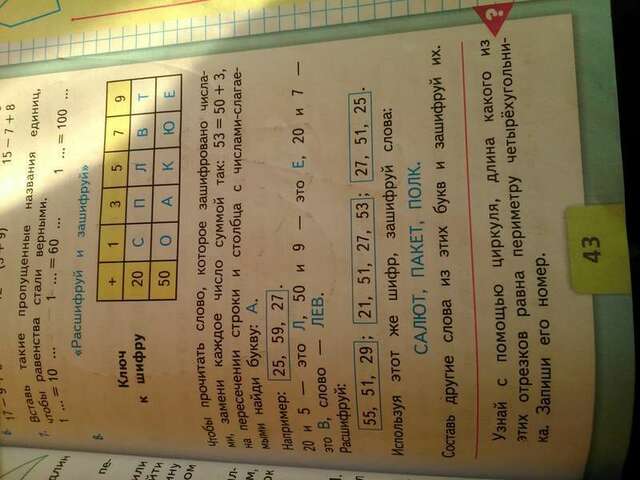 6. 17 – 9
15 – 7 + 8
7. Вставь такие пропущенные названия единиц,
чтобы равенства стали верными.
1 ... = 10 ... 1 ... = 60 ... 1 ... = 100 ...
8. «Расшифруй и зашифруй»
Ключ
к шифру
+ 1 3 5 7 9
20 С П Л В Т
50 О А К Ю Е
Чтобы прочитать слово, которое зашифровано числа-
ми, замени каждое число суммой так: 53 = 50 + 3,
на пересечении строки и столбца с числами-слагае-
мыми найди букву: А.
Например: 25, 59, 27.
20 и 5 — это Л, 50 и 9 — это Е, 20 и 7 —
это В, слово — ЛЕВ.
Расшифруй:
55, 51, 29; 21, 51, 27, 53; 27, 51, 25.
Используя этот же шифр, зашифруй слова:
САЛЮТ, ПАКЕТ, ПОЛК.
Составь другие слова из этих букв и зашифруй их.
?
Узнай с помощью циркуля, длина какого из
этих отрезков равна периметру четырёхугольни-
ка. Запиши его номер.
43